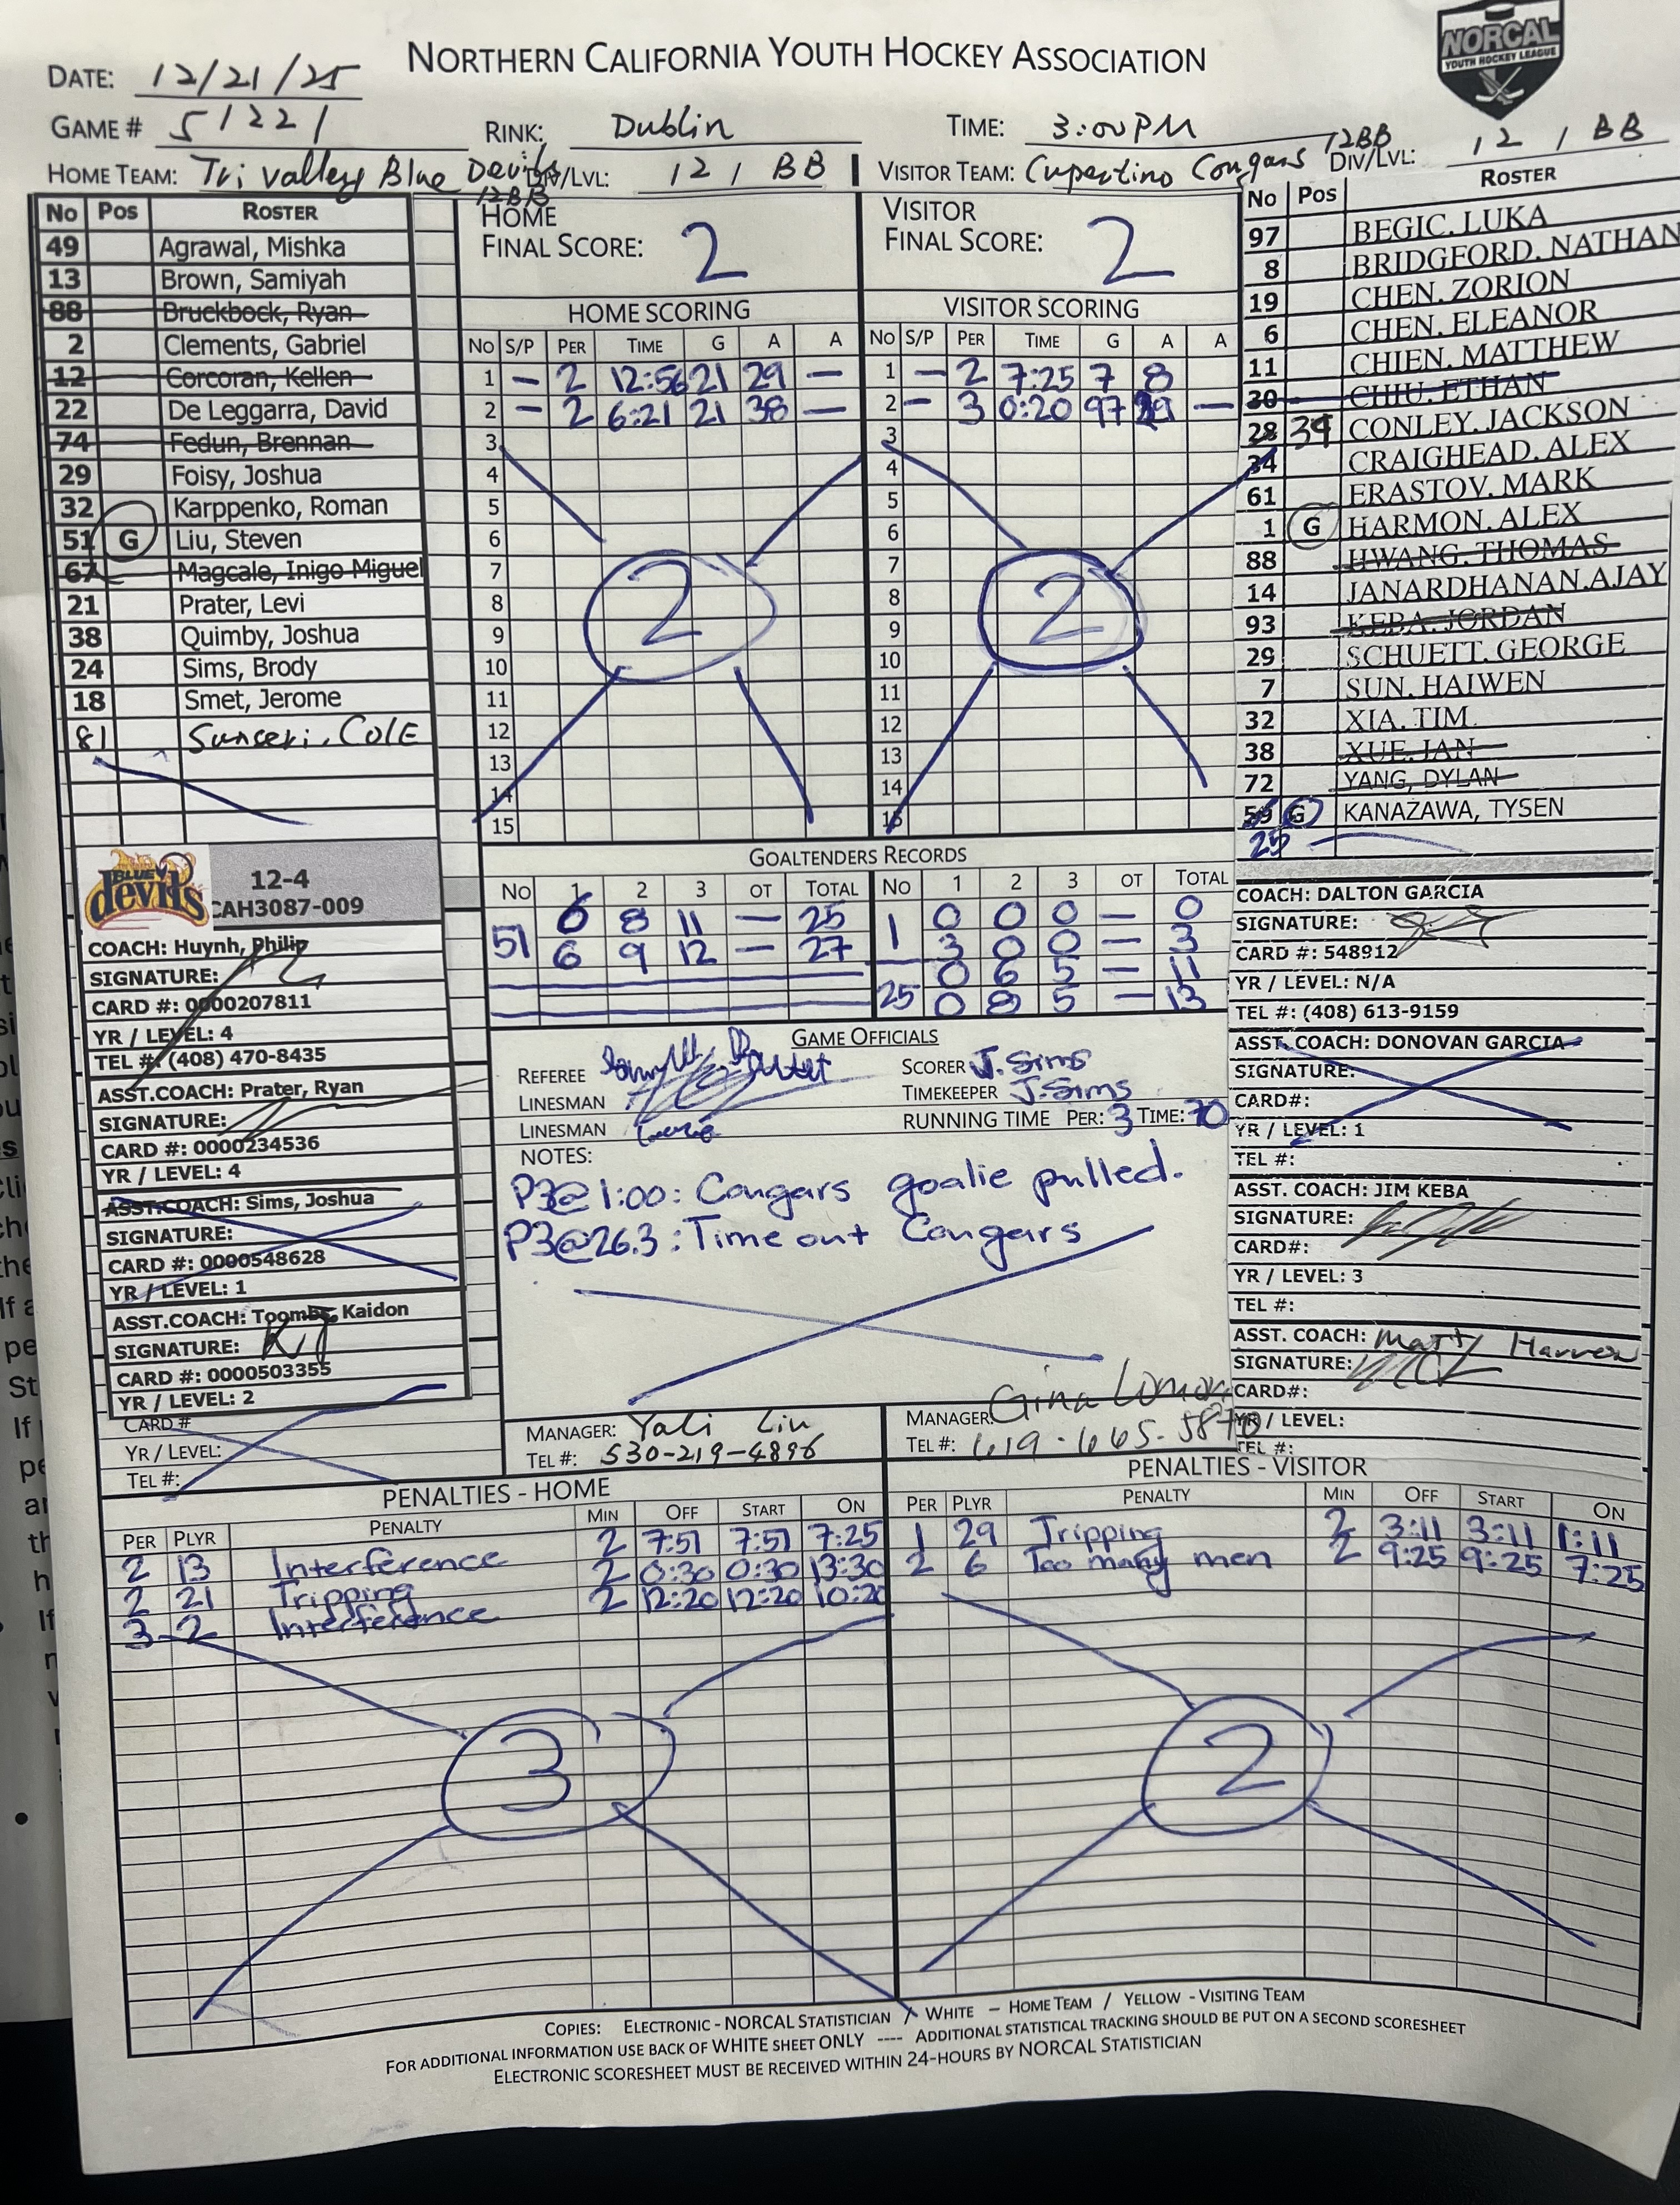 NORTHERN CALIFORNIA YOUTH HOCKEY ASSOCIATION
NORCAL
YOUTH HOCKEY LEAGUE
DATE: 12/21/25
GAME # 51221 RINK: Dublin TIME: 3:00PM
HOME TEAM: Tri valley Blue Devils 12BB DIV/LVL: 12 / BB VISITOR TEAM: Cupertino Cougars 12BB DIV/LVL: 12 / BB
No Pos ROSTER
49 Agrawal, Mishka
13 Brown, Samiyah
88 Bruckbock, Ryan
2 Clements, Gabriel
12 Corcoran, Kellen
22 De Leggarra, David
74 Fedun, Brennan
29 Foisy, Joshua
32 Karppenko, Roman
51 G Liu, Steven
67 Magcale, Inigo Miguel
21 Prater, Levi
38 Quimby, Joshua
24 Sims, Brody
18 Smet, Jerome
81 Sunseri, Cole
BLUE devils
12-4
CAH3087-009
COACH: Huynh, Philip
SIGNATURE:
CARD #: 0000207811
YR / LEVEL: 4
TEL #: (408) 470-8435
ASST.COACH: Prater, Ryan
SIGNATURE:
CARD #: 0000234536
YR / LEVEL: 4
ASST.COACH: Sims, Joshua
SIGNATURE:
CARD #: 0000548628
YR / LEVEL: 1
ASST.COACH: Toombs, Kaidon
SIGNATURE: KT
CARD #: 0000503355
YR / LEVEL: 2
CARD #
YR / LEVEL:
TEL #:
HOME
FINAL SCORE: 2
VISITOR
FINAL SCORE: 2
HOME SCORING
No S/P PER TIME G A A
1 - 2 12:56 21 29 -
2 - 2 6:21 21 38 -
3
4
5
6
7
8
9
10
11
12
13
14
15
2
VISITOR SCORING
No S/P PER TIME G A A
1 - 2 7:25 7 8
2 - 3 0:20 97 29 -
3
4
5
6
7
8
9
10
11
12
13
14
15
2
GOALTENDERS RECORDS
No 1 2 3 OT TOTAL No 1 2 3 OT TOTAL
51 6 8 11 - 25 1 0 0 0 - 0
6 9 12 - 27 3 0 0 - 3
25 0 6 5 - 11
0 8 5 - 13
GAME OFFICIALS
REFEREE
LINESMAN
LINESMAN
SCORER J. Sims
TIMEKEEPER J. Sims
RUNNING TIME PER: 3 TIME: 70
NOTES:
P3@1:00: Cougars goalie pulled.
P3@26.3: Time out Cougars
MANAGER: Yali Liu
TEL #: 530-219-4896
MANAGER: Gina
TEL #: 619-665-5870
No Pos ROSTER
97 BEGIC, LUKA
8 BRIDGFORD, NATHAN
19 CHEN, ZORION
6 CHEN, ELEANOR
11 CHIEN, MATTHEW
30 CHIU, ETHAN
28 39 CONLEY, JACKSON
34 CRAIGHEAD, ALEX
61 ERASTOV, MARK
1 G HARMON, ALEX
88 HWANG, THOMAS
14 JANARDHANAN, AJAY
93 KEBA, JORDAN
29 SCHUETT, GEORGE
7 SUN, HAIWEN
32 XIA, TIM
38 XUE, IAN
72 YANG, DYLAN
59 G KANAZAWA, TYSEN
25
COACH: DALTON GARCIA
SIGNATURE:
CARD #: 548912
YR / LEVEL: N/A
TEL #: (408) 613-9159
ASST. COACH: DONOVAN GARCIA
SIGNATURE:
CARD#:
YR / LEVEL: 1
TEL #:
ASST. COACH: JIM KEBA
SIGNATURE:
CARD#:
YR / LEVEL: 3
TEL #:
ASST. COACH: Matt
SIGNATURE:
CARD#:
YR / LEVEL:
TEL #:
PENALTIES - HOME
PER PLYR PENALTY MIN OFF START ON
2 13 Interference 2 7:51 7:51 7:25
2 21 Tripping 2 0:30 0:30 13:30
3 2 Interference 2 12:20 12:20 10:20
3
PENALTIES - VISITOR
PER PLYR PENALTY MIN OFF START ON
1 29 Tripping 2 3:11 3:11 1:11
2 6 Too many men 2 9:25 9:25 7:25
2
COPIES: ELECTRONIC - NORCAL STATISTICIAN / WHITE – HOME TEAM / YELLOW - VISITING TEAM
FOR ADDITIONAL INFORMATION USE BACK OF WHITE SHEET ONLY ---- ADDITIONAL STATISTICAL TRACKING SHOULD BE PUT ON A SECOND SCORESHEET
ELECTRONIC SCORESHEET MUST BE RECEIVED WITHIN 24-HOURS BY NORCAL STATISTICIAN